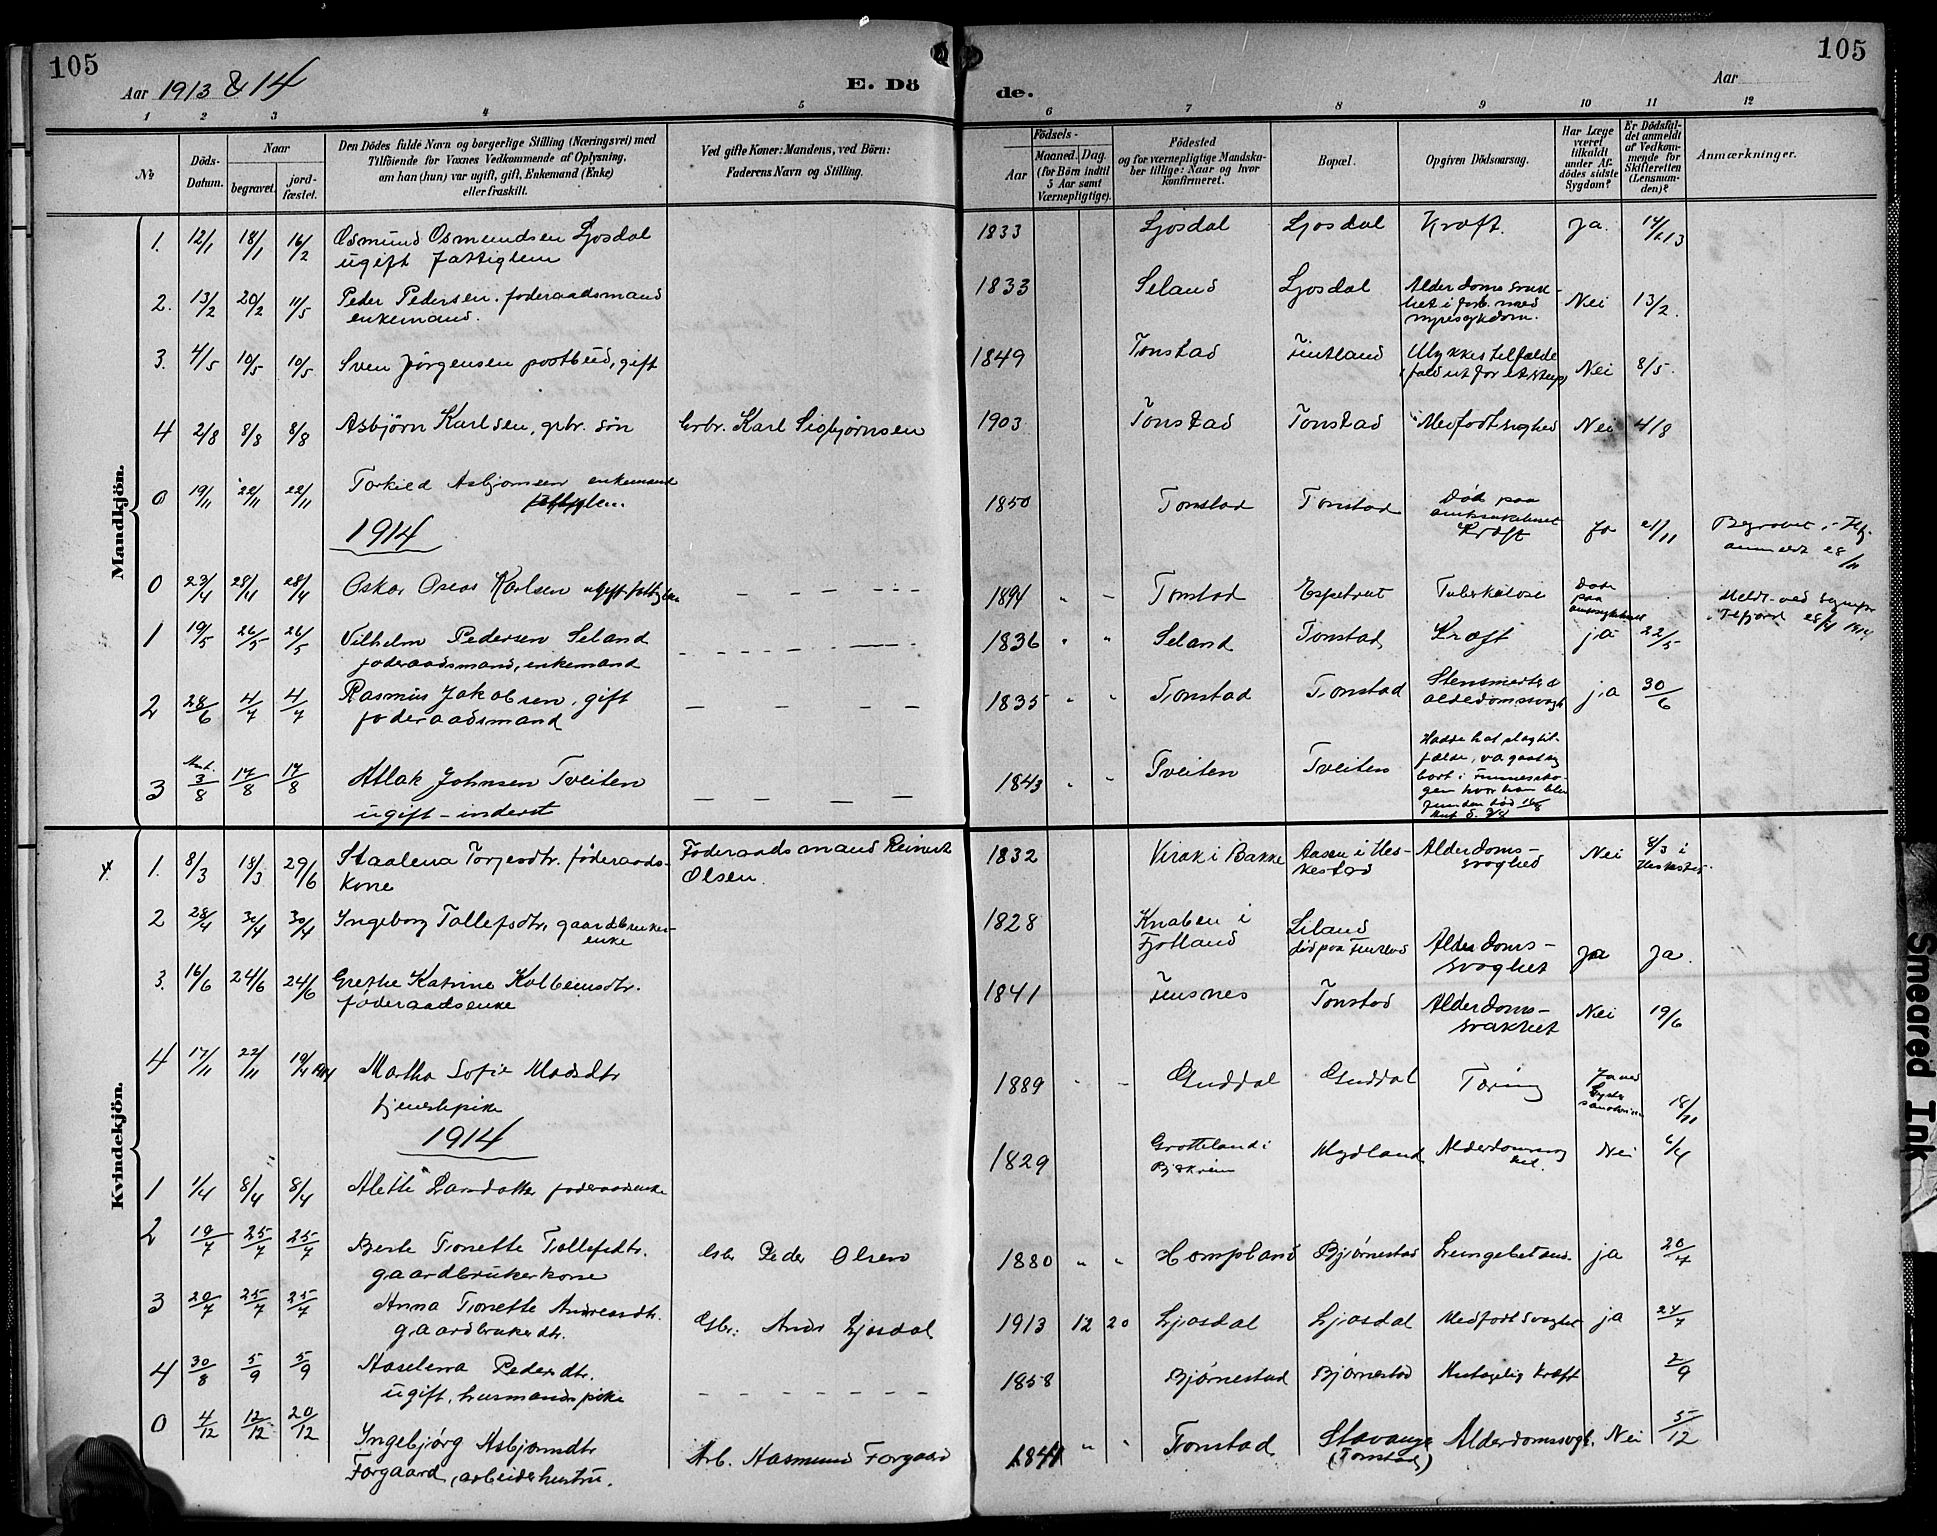 105
Aar 1913 & 14
E. Dö
de.
Aar
105
1 2 3 4 5 6 7 8 9 10 11 12
No
Döds-
Datum.
Naar
begravet.
jord-
fæstet.
Den Dödes fulde Navn og borgerlige Stilling (Næringsvei) med
Tilföiende for Voxnes Vedkommende af Oplysning,
om han (hun) var ugift, gift, Enkemand (Enke)
eller fraskilt.
Ved gifte Koner: Mandens, ved Börn:
Faderens Navn og Stilling.
Födsels-
Aar
Maaned. Dag.
(for Börn indtil
5 Aar samt
Værnepligtige).
Födested
og for værnepligtige Mandska-
ber tillige: Naar og hvor
konfirmeret.
Bopæl.
Opgiven Dödsaarsag.
Har Læge
været
tilkaldt
under Af-
dödes sidste
Sygdom?
Er Dödsfal-
det anmeldt
af Vedkom-
mende for
Skifteretten
(Lensman-
den)?
Anmærkninger.
Mandkjön.
1. 12/1 18/1 16/2 Osmund Osmundsen Ljosdal
ugift fattiglem
1833 Ljosdal Ljosdal Kræft. Ja. 14/1 13
2. 13/2 20/2 11/5 Peder Pedersen. foderaadsmand
enkemand.
1833 Seland Ljosdal Alderdomssvak-
het i forb. med
nyresykdom.
Nei 13/2.
3. 4/5 10/5 10/5 Sven Jörgensen postbud, gift
1849 Tonstad Fintland Ulykkestilfælde
Nei 8/5.
4 2/8 8/8 8/8 Asbjörn Karlsen, grbr. sön Grbr. Karl Sigbjörnsen
1903 Tonstad Tonstad Medfödt svaghed Nei 4/8
0 19/11 22/11 22/11 Torkild Asbjornsen enkemand
1850 Tonstad Tonstad Död paa
Kræft Ja 21/11 Begravet i
anmeldt 28/11
1914
0 23/4 28/4 Oskar Oseas Karlsen ugift
1894 " Tonstad Espetveit Tuberkulose
paa
Meldt ved
1 19/5 26/5 26/5 Vilhelm Pedersen Seland
foderaadsmand, enkemand
1836 " " Seland Tonstad Kræft ja 22/5
2 28/6 4/7 4/7 Rasmus Jakobsen, gift
foderaadsmand
1835 " " Tonstad Tonstad
ja 30/6
3 3/8 17/8 17/8 Atlak Johnsen Tveiten
ugift - inderst
1843 " " Tveiten Tveiten Hadde hat slagtil-
fælde, var gaat sig
bort i
gen hvor han blev
funden död
Kvindekjön.
1. 8/3 18/3 29/6 Staalena Torjesdtr. föderaads-
kone
Föderaadsmand Reinert
Olsen.
1832 Virak i Bakke Aasen i Hes-
kestad
Alderdoms-
svaghed
Nei 8/3 i
Heskestad.
2 28/4 30/4 30/4 Ingeborg Tollefsdtr. gaardbruker-
enke
1828 Knaben i
Fjotland
Liland
död paa
Alderdoms-
svaghet
Ja Ja.
3. 16/6 24/6 24/6 Grethe Katrine Kolbeinsdtr.
föderaadsenke
1841 Fusnes Tonstad Alderdoms-
svakhet
Nei 19/6
4 17/11 22/11 19/4 1914 Martha Sofie Madsdtr
tjenestepike
1889 Guddal Guddal Tæring
18/11
1914
1 1/4 8/4 8/4 Alette foderaadsenke
1829 Grotteland i
Bjerkreim
Mydland Alderdomssvag
het. Nei 6/4
2 19/7 25/7 25/7 Berte Tonette Tollefsdtr.
gaardbrukerkone
Gbr Peder Olsen
1880 " " Hompland Björnestad Lungebetænd. ja 20/7
3 20/7 25/7 25/7 Anna Tonette Andreasdtr.
gaardbrukerdtr.
Gbr: Andr Ljosdal
1913 12 20 Ljosdal Ljosdal Medfödt svaghet ja 24/7
4 30/8 5/9 5/9 Aaselena Pedersdtr.
ugift, husmandspike
1858 Björnestad Björnestad Antagelig kræft 2/9
0 4/12 12/12 20/12 Ingebjörg Asbjørnsdtr
Forgaard, arbeiderhustru.
Arb. Aasmund Forgaard
1841 " " Tonstad Stavanger
(Tonstad)
Alderdomssvagh. Nei 5/12
Smeared Ink